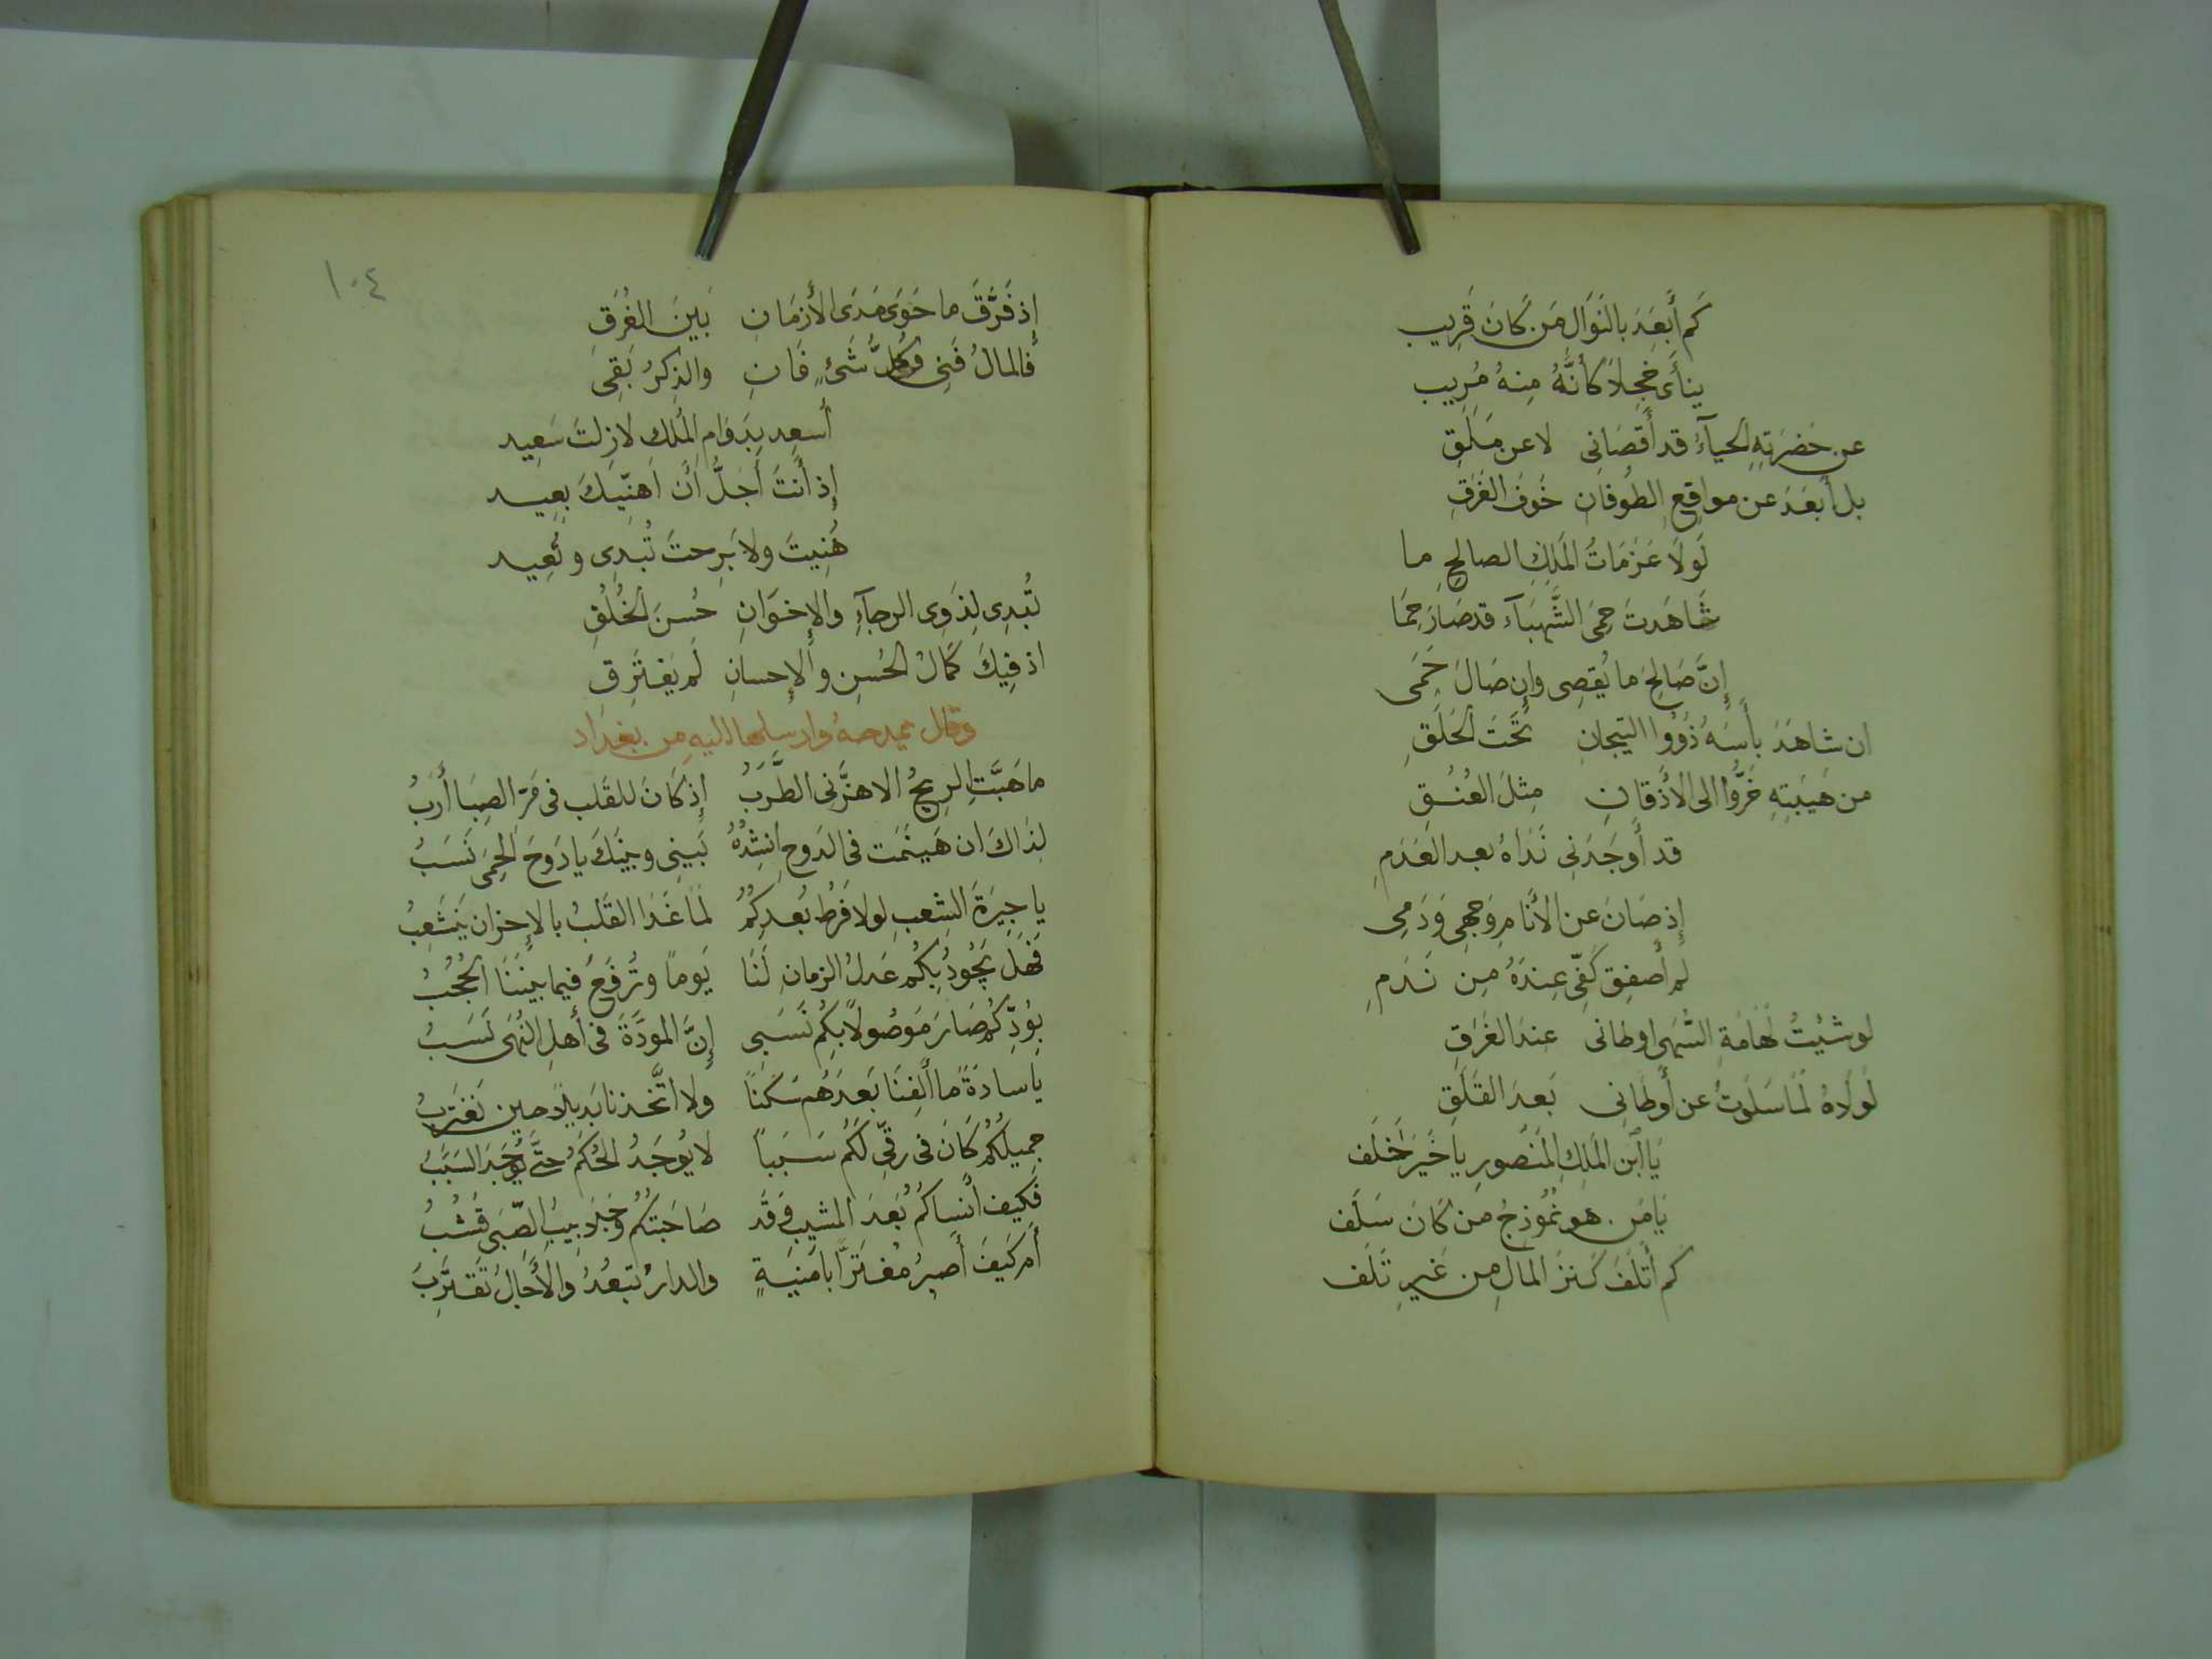 كَم أَبعَدَ بالنَوَال مَن كَانَ قَرِيب
ينأَى خَجِلاً كأنَّهُ مِنهُ مُرِيب
عن حَضرَتِهِ الحيآءُ قد أَقصَانِى لا عن مَلَقِ
بل أَبعَدَ عن مواقِعِ الطُوفان خَوفَ الغَرَقِ
لَولَا عَزَمَاتُ المَلِكِ الصالِحِ ما
شَاهَدتَ حِمَى الشَّهبَآء قد صَارَ حِمَا
إِنَّ صَالِحَ ما يُقصِى وإِن صَالَ حَمَى
ان شاهَدَ بأسَهُ ذَوُوا التيجانِ تَحتَ الحَلَقِ
من هَيبَتِهِ خَرُّوا الى الأَذقَانِ مِثلَ العُنُقِ
قد أَوجَدَنِى نَدَاهُ بعد العَدَمِ
إِذ صَانَ عن الأنَامِ وَجهِى وَدَمِى
لم أَصفِق كَفِّى عِندَهُ مِن نَدَمِ
لو شئِتُ لهَامَةِ السُّهَى اوطانى عندَ الغَرَقِ
لَولَاهُ لَمَا سَلَوتُ عن أَوطَانِى بَعدَ القَلَقِ
يَا ابْن المَلِكِ المَنصُورِ يا خَيرَ خَلَف
يَا مَن هو نُمُوذجُ من كَانَ سَلَف
كم أَتلَفَ كَنزَ المالِ مِن غَيرِ تَلَف
١٠٤
إِذ فَرَّقَ ما حَوَى مَدَى الأَزمَانِ بَينَ الفِرَقِ
فالمالُ فَنِى وكُلُّ شَئٍ فَانِ والذِكرُ بَقِى
أَسعِد بِدَوَامِ المُلكِ لازِلتَ سَعِيد
إِذ أَنتَ أَجَلُّ أَن اَهَنِّيكَ بعِيد
هُنِيتَ ولا بَرِحتَ تُبدِى وتُعِيد
تُبدِى لِذَوِى الرجآءِ والإخوَانِ حُسنَ الخُلُقِ
اذ فِيكَ كَمَالُ الحُسنِ والإِحسانِ لَم يَفتَرِقِ
وقال يمدحهُ وارسلها اليهِ مِن بغدَاد
ما هَبَّتِ الرِيحُ الا هزَّنِى الطَّرَبُ إِذ كَانَ للقَلب فى مَرّ الصِبَا أَرَبُ
لِذَاكَ ان هَينَمَت فى الدَوحِ اُنشِدُهُ بَينِى وبينَكَ يا دَوحَ الحِمَى نَسَبُ
يا جِيرَةَ الشِعبِ لولا فَرطُ بُعدِكُمُ لَمَا غَدَا القَلبُ بالاحزانِ يَنشَعِبُ
فَهَل يَجُودُ بِكُم عَدلُ الزمانِ لَنَا يَوماً وتُرفَعُ فيما بيننَا الحُجُبُ
بِوُدِّكُم صَارَ مَوصُولاً بِكُم نَسَبِى إِنَّ المَودَّةَ فى أَهلِ النُهَى نَسَبُ
يا سادَةً ما أَلِفنَا بَعدَهُم سَكَنًا ولا اتَّخذنا بَديلاً حين نَغتَربُ
جميلُكُم كَانَ فى رقّى لَكُم سَبَباً لا يُوجَدُ الحُكمُ حتَّى يُوجَدَ السَبَبُ
فَكيفَ أَنساكُم بُعدَ المشيب وَقَد صَاحَبتُكُم وجَلابِيبُ الصِّبَى قُشُبُ
أَم كَيفَ أَصبِرُ مُغتَرًّا بامنيَةٍ والدارُ تبعُدُ والأَجَالُ تَقتَرِبُ